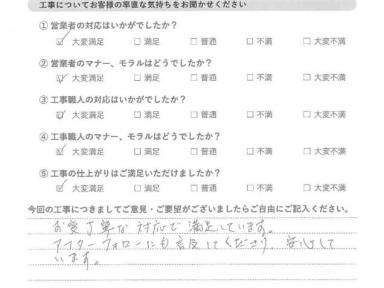 工事についてお客様の率直な気持ちをお聞かせください
① 営業者の対応はいかがでしたか？
☑ 大変満足 □ 満足 □ 普通 □ 不満 □ 大変不満
② 営業者のマナー、モラルはどうでしたか？
☑ 大変満足 □ 満足 □ 普通 □ 不満 □ 大変不満
③ 工事職人の対応はいかがでしたか？
☑ 大変満足 □ 満足 □ 普通 □ 不満 □ 大変不満
④ 工事職人のマナー、モラルはどうでしたか？
☑ 大変満足 □ 満足 □ 普通 □ 不満 □ 大変不満
⑤ 工事の仕上がりはご満足いただけましたか？
☑ 大変満足 □ 満足 □ 普通 □ 不満 □ 大変不満
今回の工事につきましてご意見・ご要望がございましたらご自由にご記入ください。
丁寧な対応で満足しています。
アフターフォローにも言及してくださり、安心して
います。